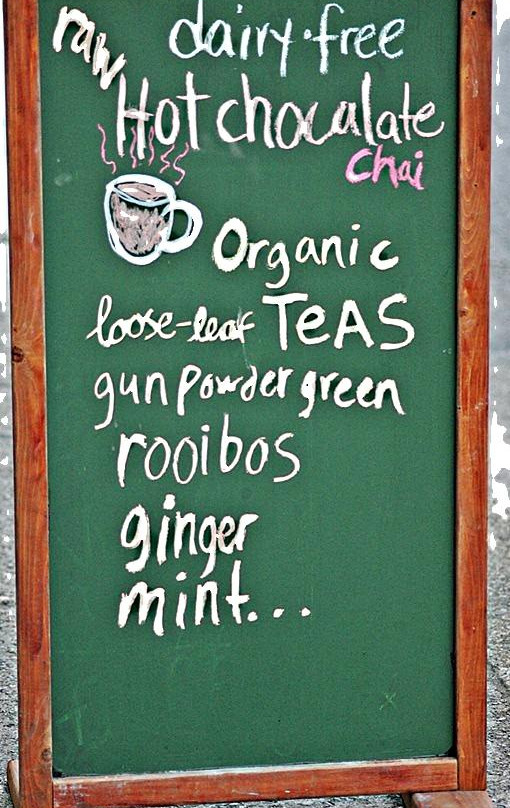 raw dairy-free
Hot chocalate
chai
Organic
loose-leaf TeAS
gunpowder green
rooibos
ginger
mint...